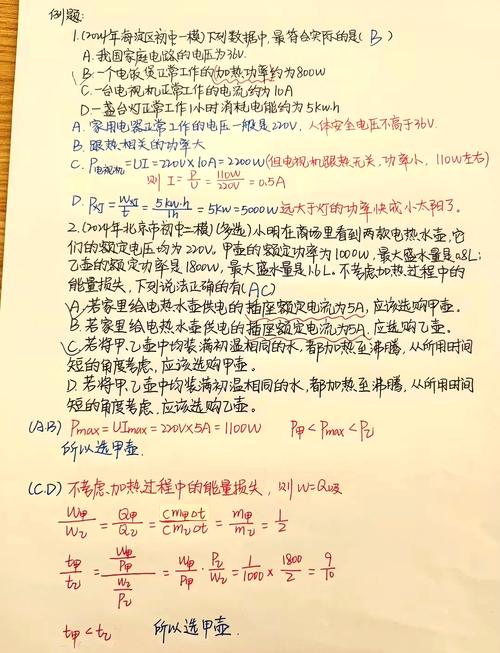 例题:
1.(2024年海淀区初中一模)下列数据中,最符合实际的是(B)
A.我国家庭电路的电压为36V.
B.一个电饭煲正常工作的加热功率约为800W
C.一台电视机正常工作的电流约为10A
D.一盏台灯正常工作1小时消耗电能约为5kw.h
A.家用电器正常工作的电压一般是220V,人体安全电压不高于36V.
B.跟热相关的功率大
C.P电视机=UI=220V×10A=2200W(但电视机跟热无关,功率小,110W左右)
则 I=P/U=110W/220V=0.5A
D.P灯=W灯/t=5kw.h/1h=5kW=5000W 远大于灯的功率快成小太阳了。
2.(2024年北京市初中二模)(多选)小明在商场里看到两款电热水壶,它
们的额定电压均为220V,甲壶的额定功率为1000W,最大盛水量是0.8L;
乙壶的额定功率是1800W,最大盛水量是1.6L。不考虑加热过程中的
能量损失,下列说法正确的有(AC)
A.若家里给电热水壶供电的插座额定电流为5A,应该选购甲壶。
B.若家里给电热水壶供电的插座额定电流为5A,应选购乙壶。
C.若将甲、乙壶中均装满初温相同的水,都加热至沸腾,从所用时间
短的角度考虑,应该选购甲壶。
D.若将甲、乙壶中均装满初温相同的水,都加热至沸腾,从所用时间
短的角度考虑,应该选购乙壶。
(A.B) Pmax=UImax=220V×5A=1100W P甲<Pmax<P乙
所以选甲壶.
(C.D) 不考虑加热过程中的能量损失,则W=Q吸
W甲/W乙=Q甲/Q乙=Cm甲Δt/Cm乙Δt=m甲/m乙=1/2
t甲/t乙=(W甲/P甲)/(W乙/P乙)=W甲/P甲·P乙/W乙=1/1000×1800/2=9/10
t甲<t乙 所以选甲壶.